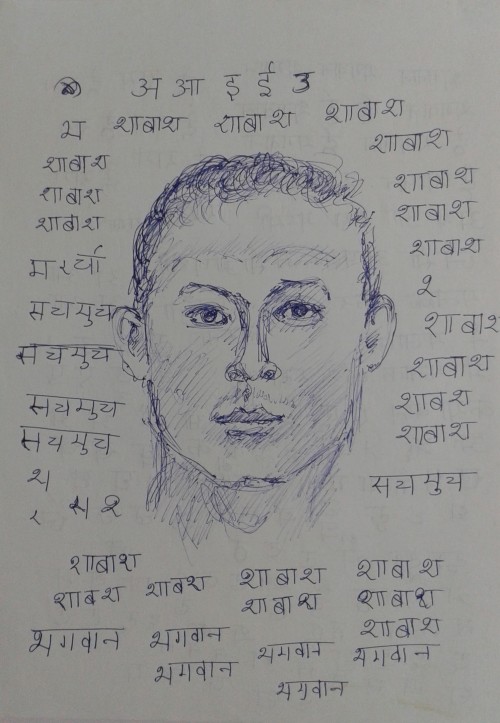 अ आ इ ई उ
भ शाबाश शाबाश शाबाश
शाबाश
शाबाश शाबाश
शाबाश शाबाश
शाबाश
शाबाश
सचमुच शाबाश
सचमुच शाबाश
सचमुच शाबश
सचमुच शाबाश
सचमुच
शाबाश शाबाश शाबाश
शाबश शाबश शाबाश शाबाश
शाबाश
भगवान भगवान भगवान भगवान
भगवान
भगवान